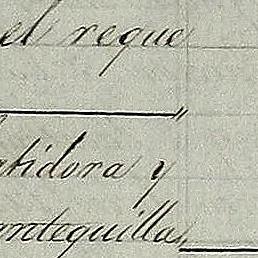 el reque
"
atidora y
antequilla